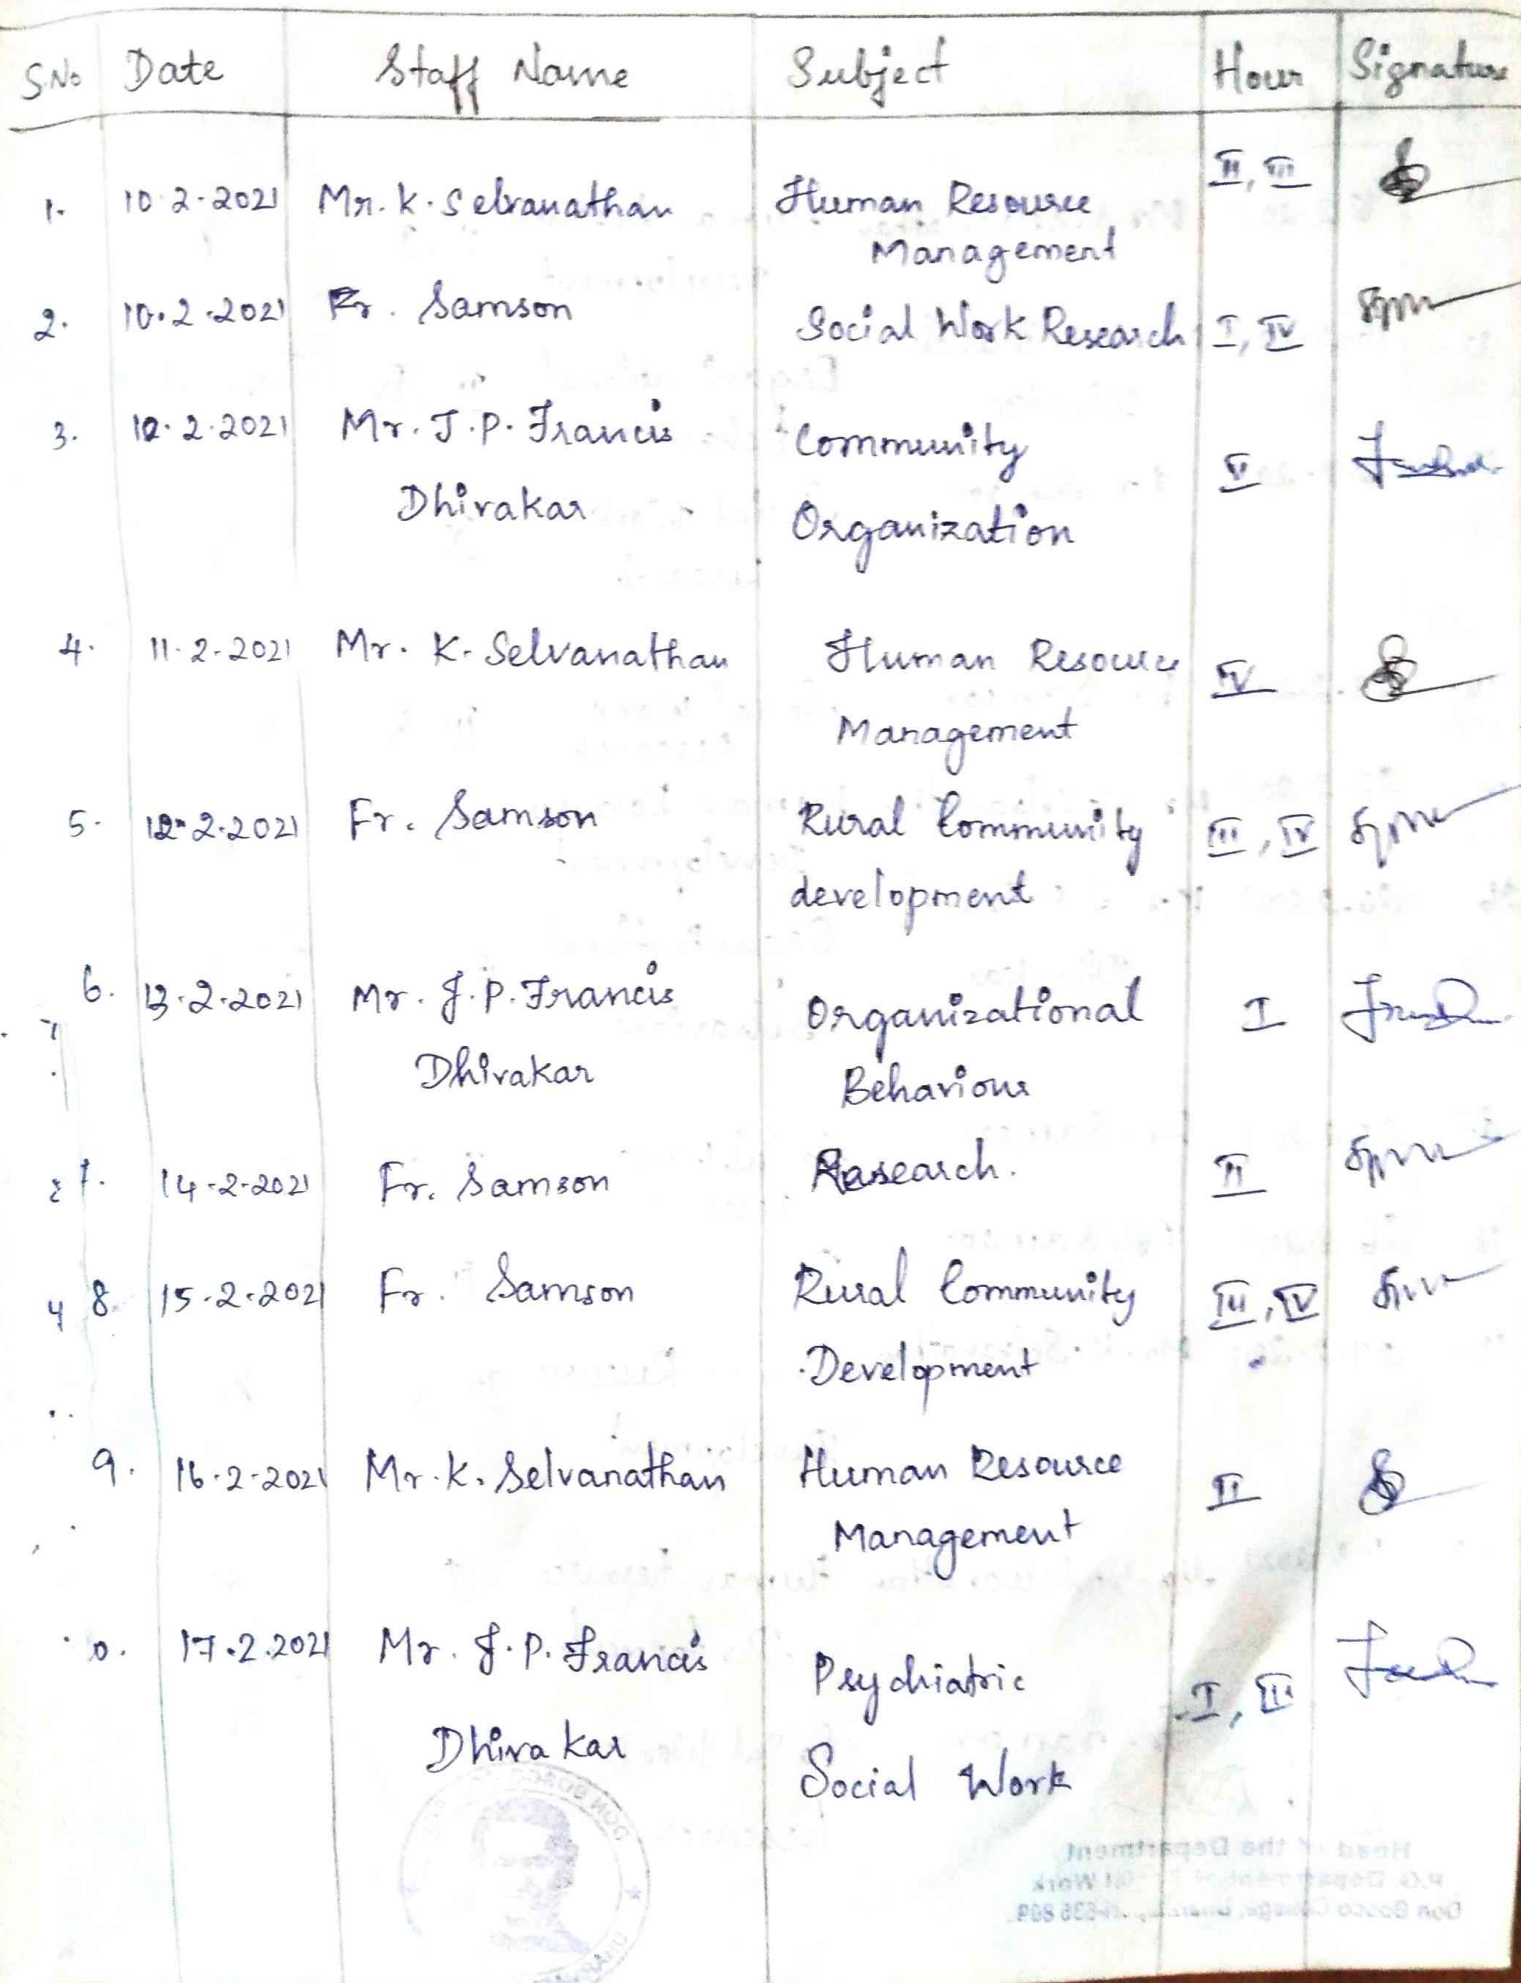 S.No Date Staff Name Subject Hour Signature
1. 10.2.2021 Mr. K. Selvanathan Human Resource II, III
Management
2. 10.2.2021 Fr. Samson Social Work Research I, IV
3. 10.2.2021 Mr. J.P. Francis Community V
Dhivakar Organization
4. 11.2.2021 Mr. K. Selvanathan Human Resource IV
Management
5. 12.2.2021 Fr. Samson Rural Community III, IV
development
6. 13.2.2021 Mr. J.P. Francis Organizational I
Dhivakar Behaviour
7. 14.2.2021 Fr. Samson Research. II
8. 15.2.2021 Fr. Samson Rural Community III, IV
Development
9. 16.2.2021 Mr. K. Selvanathan Human Resource II
Management
0. 17.2.2021 Mr. J.P. Francis Psychiatric I, III
Dhivakar Social Work